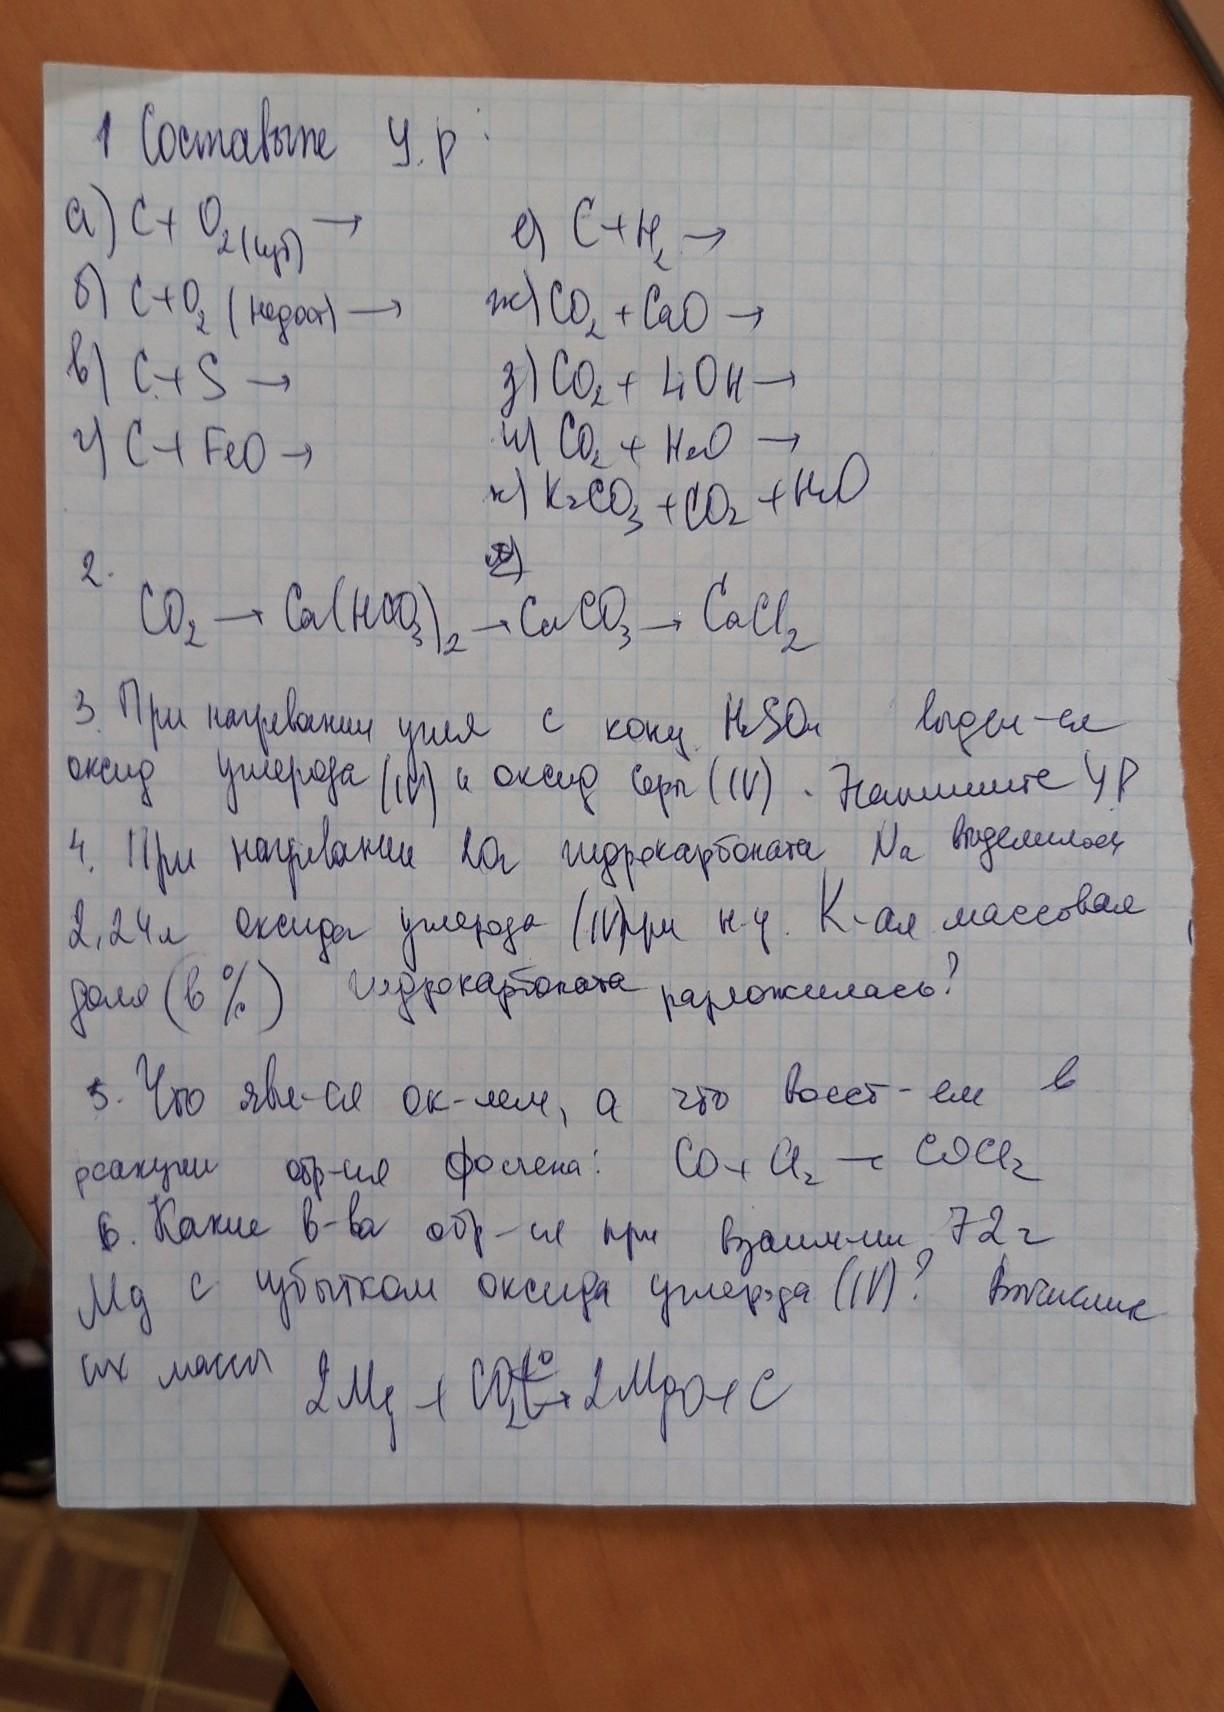 1 Составьте У.р:
а) C + O2 (изб) →
б) C + O2 (недост) →
в) C + S →
г) C + FeO →
е) C + H2 →
ж) CO2 + CaO →
з) CO2 + LiOH →
и) CO2 + H2O →
к) K2CO3 + CO2 + H2O
2.
CO2 → Ca(HCO3)2 → CaCO3 → CaCl2
3. При нагревании угля с конц. H2SO4 выдел-ся
оксид углерода (IV) и оксид серы (IV). Напишите УР
4. При нагревании 20г гидрокарбоната Na выделилось
2,24л оксида углерода (IV) при н.у. К-ая массовая
доля (в %) гидрокарбоната разложилась?
5. Что явл-ся ок-лем, а что восст-ем в
реакции обр-ия фосгена: CO + Cl2 → COCl2
6. Какие в-ва обр-ся при взаим-ии 72г
Mg с избытком оксида углерода (IV)? Вычислите
их массы 2Mg + CO2 t° → 2MgO + C